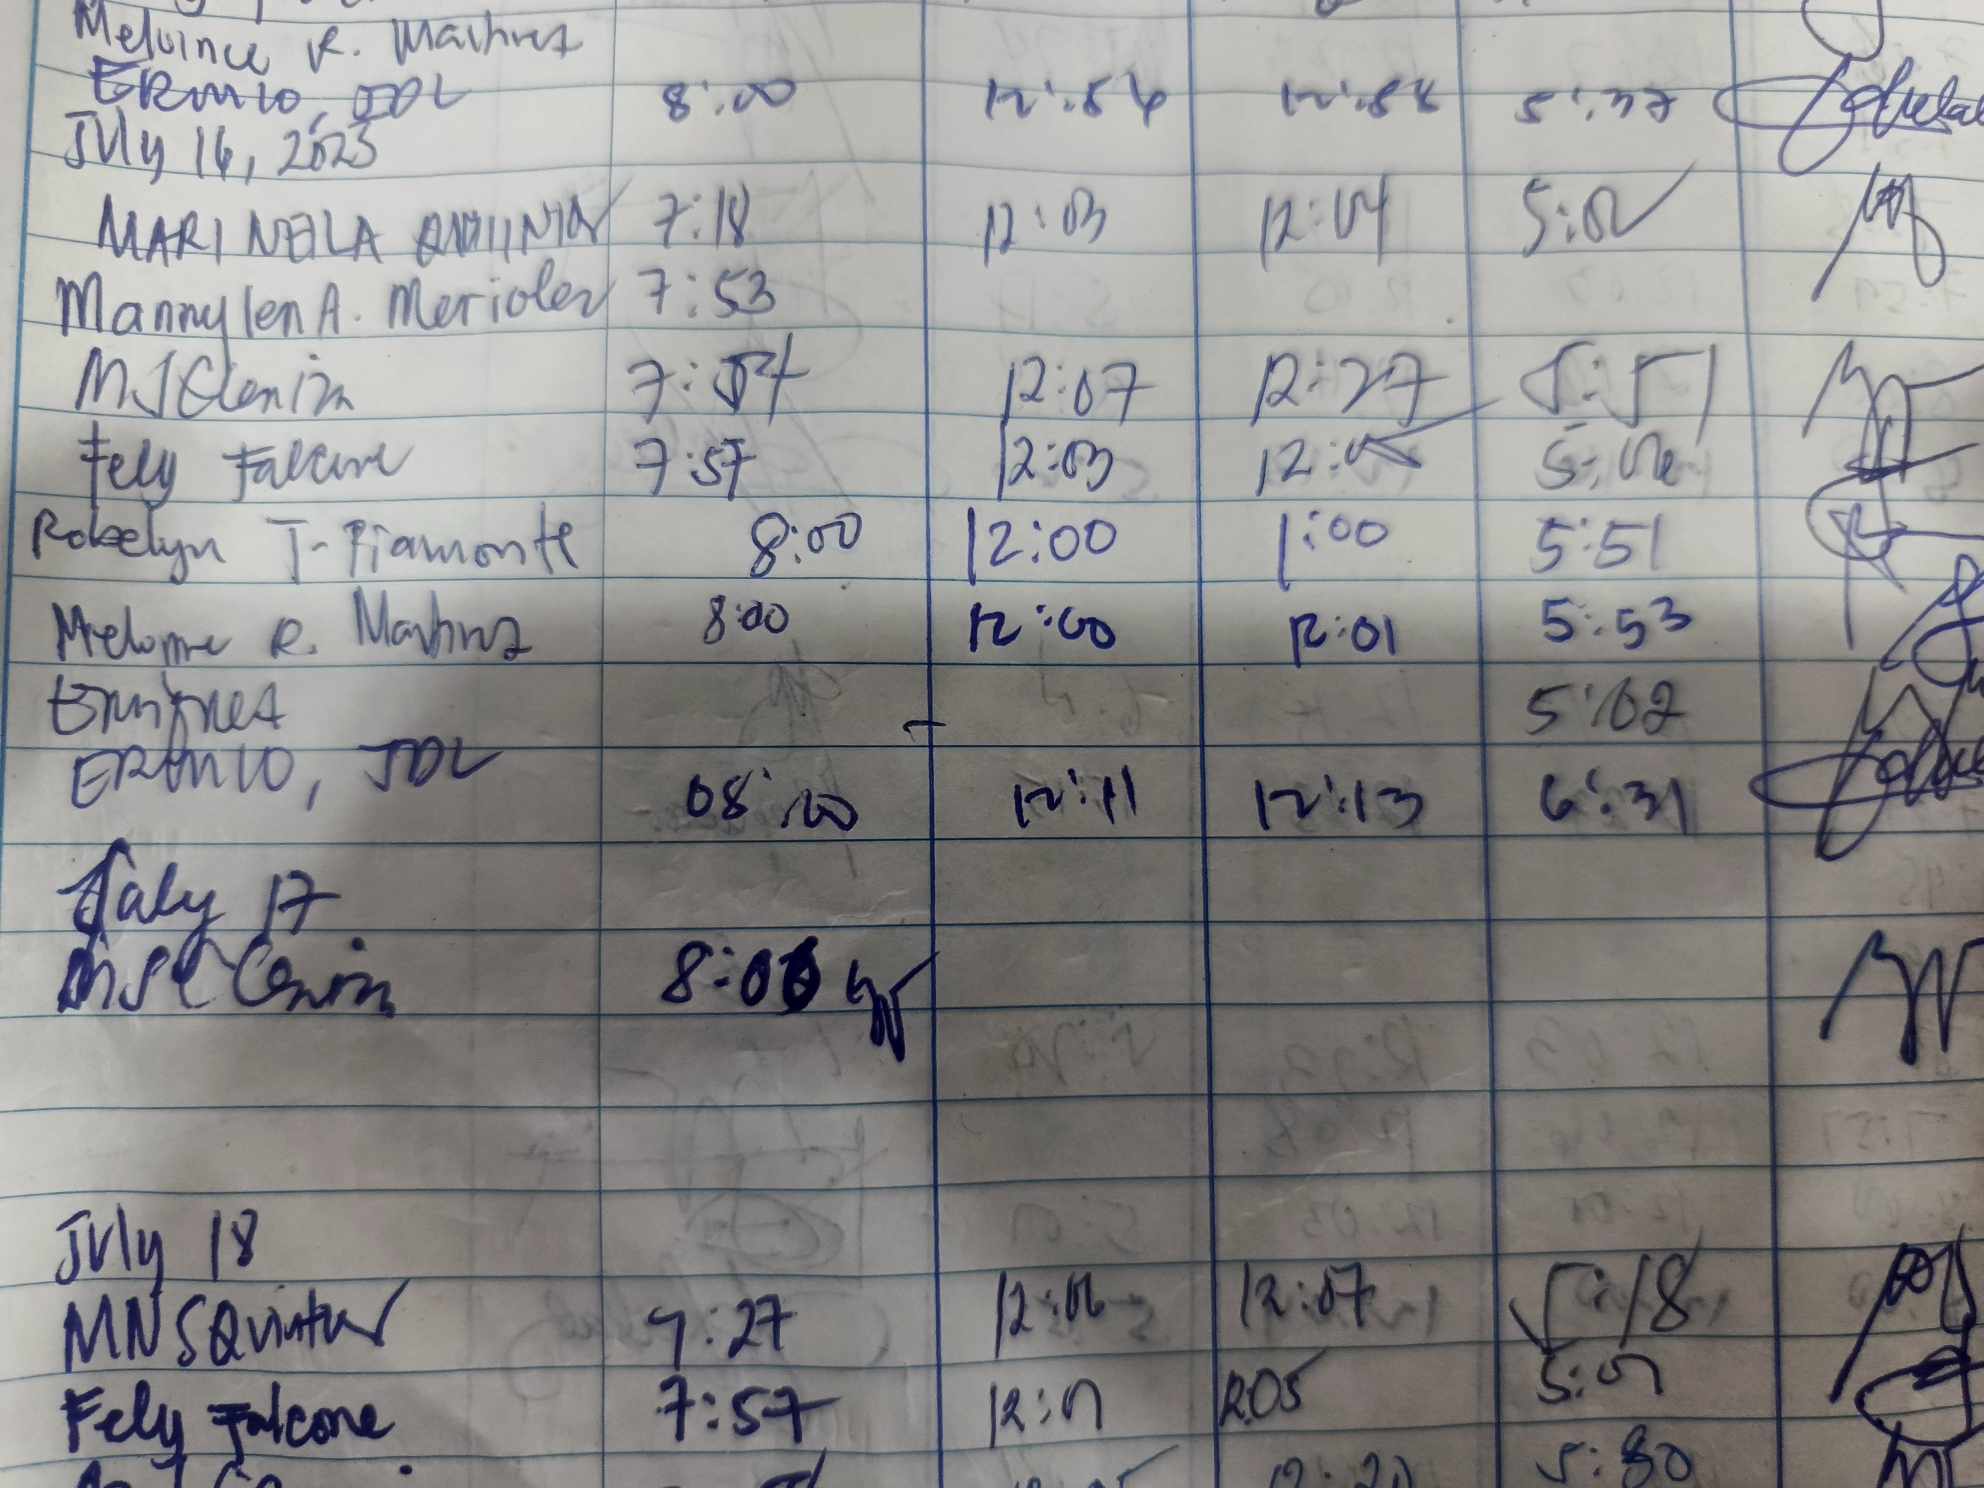 Melvince R. Martinez
ERMIO, JDL 8:00 12:54 12:58 5:37
July 16, 2025
MARINELA QUINTOS 7:18 12:03 12:04 5:02
Mannylen A. Merioles 7:53
MJCleniza 7:54 12:07 12:27 5:51
Fely Falcone 7:57 12:03 12:05 5:06
Robelyn J. Piamonte 8:00 12:00 1:00 5:51
R. Martinez 8:00 12:00 12:01 5:53
5:02
ERMIO, JDL 08:00 12:11 12:13 6:31
July 17
8:00
July 18
MNSQuintos 7:27 12:06 12:07 5:18
Fely Falcone 7:57 12:01 1205 5:01
5:30